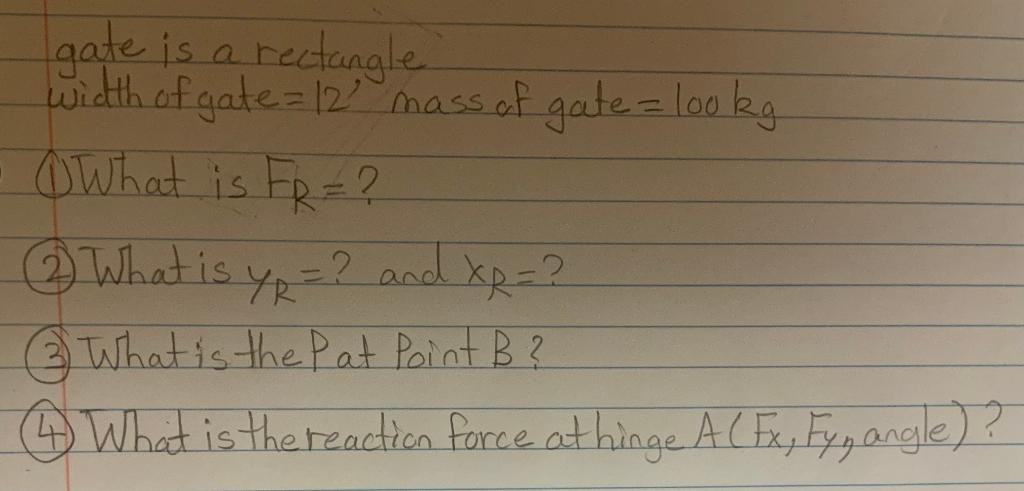 gate is a rectangle
width of gate = 12' mass of gate = 100 kg
① What is FR = ?
② What is yR = ? and xR = ?
③ What is the P at Point B ?
④ What is the reaction force at hinge A (Fx, Fy, angle) ?